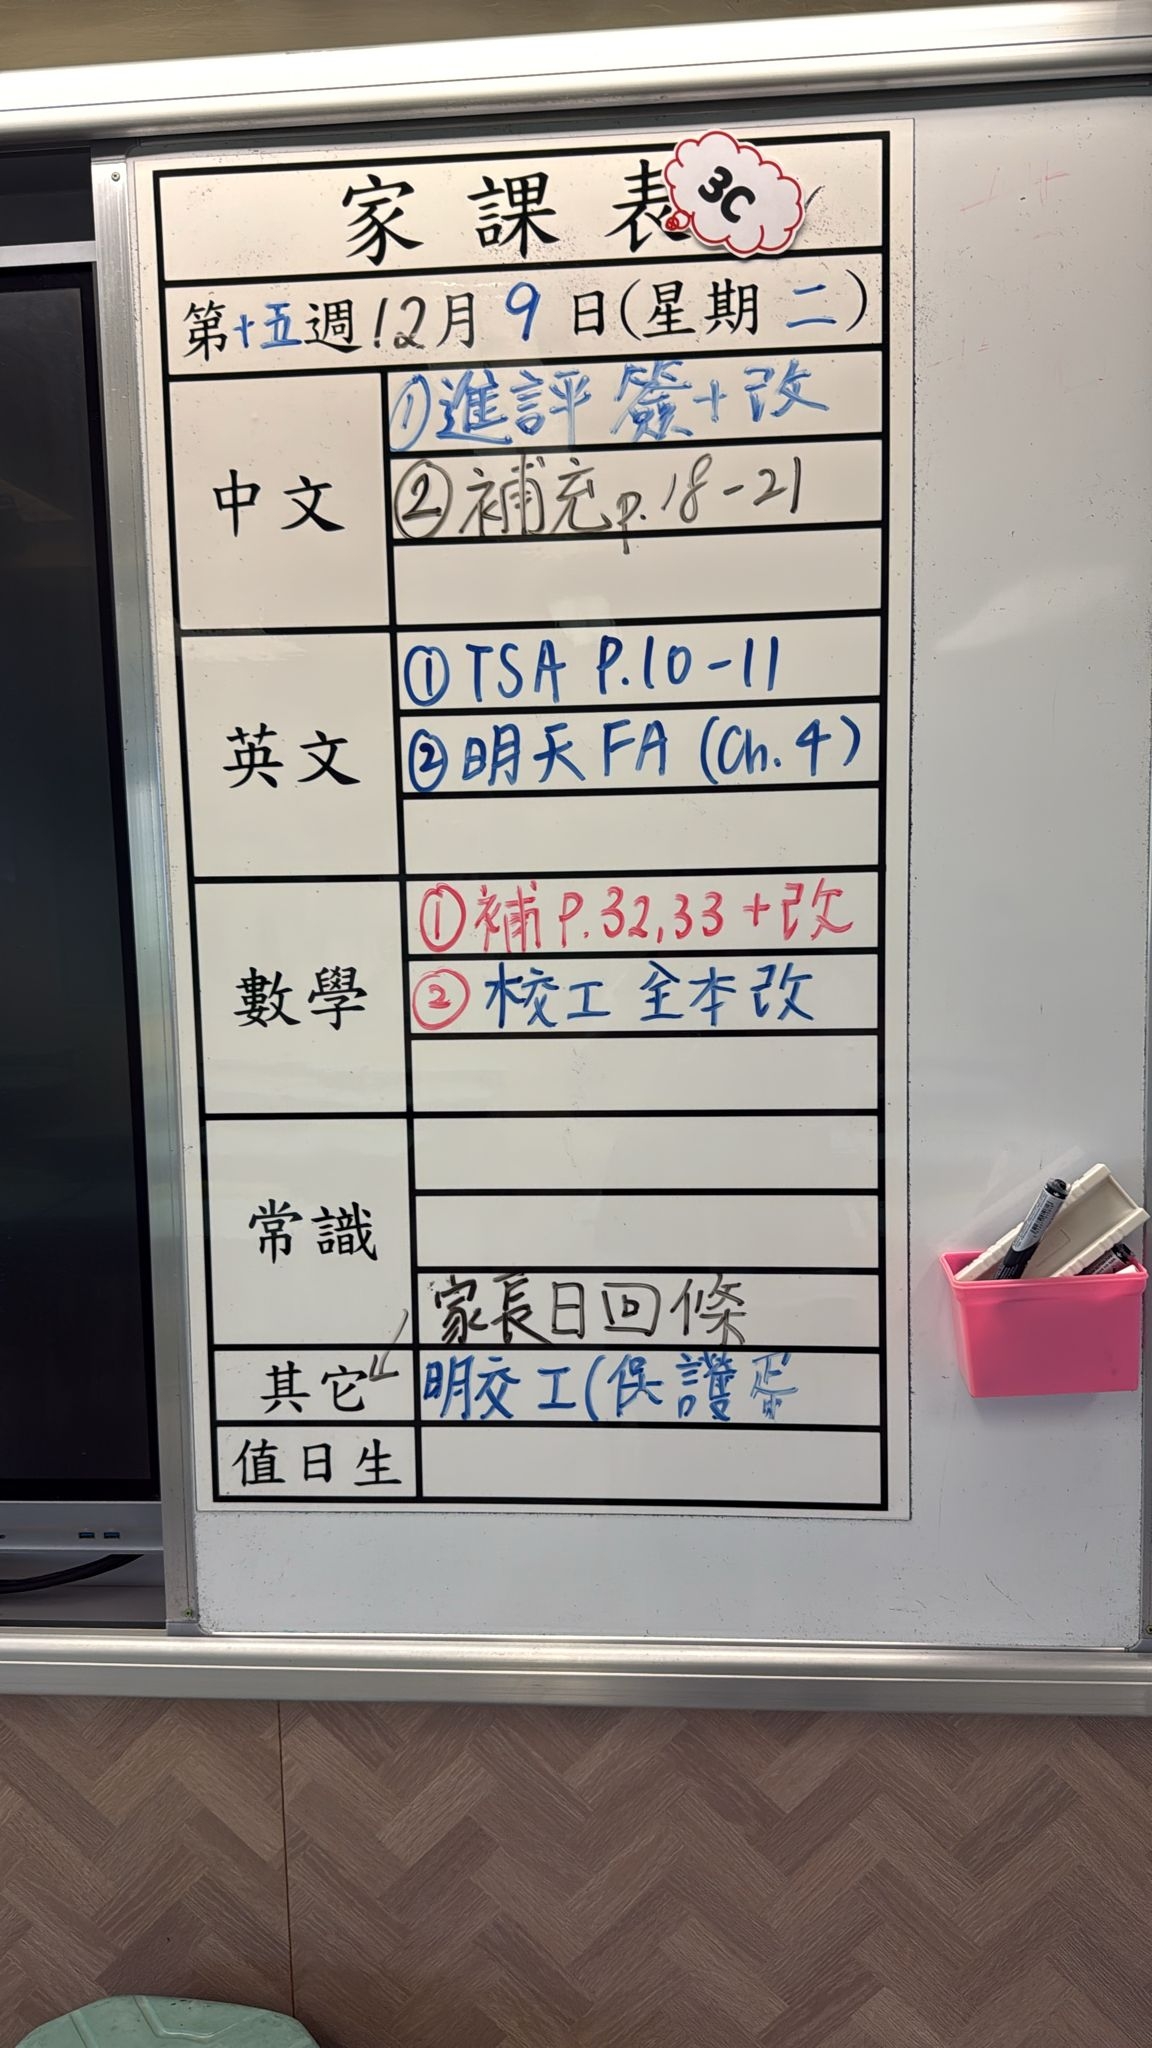 家課表
3C
第十五週12月9日(星期二)
中文
①進評 簽+改
②補充 p.18-21
英文
①TSA P.10-11
②明天 FA (Ch.4)
數學
①補 P.32,33 +改
②校工 全本改
常識
家長日回條
其它
明交工(保護蛋
值日生